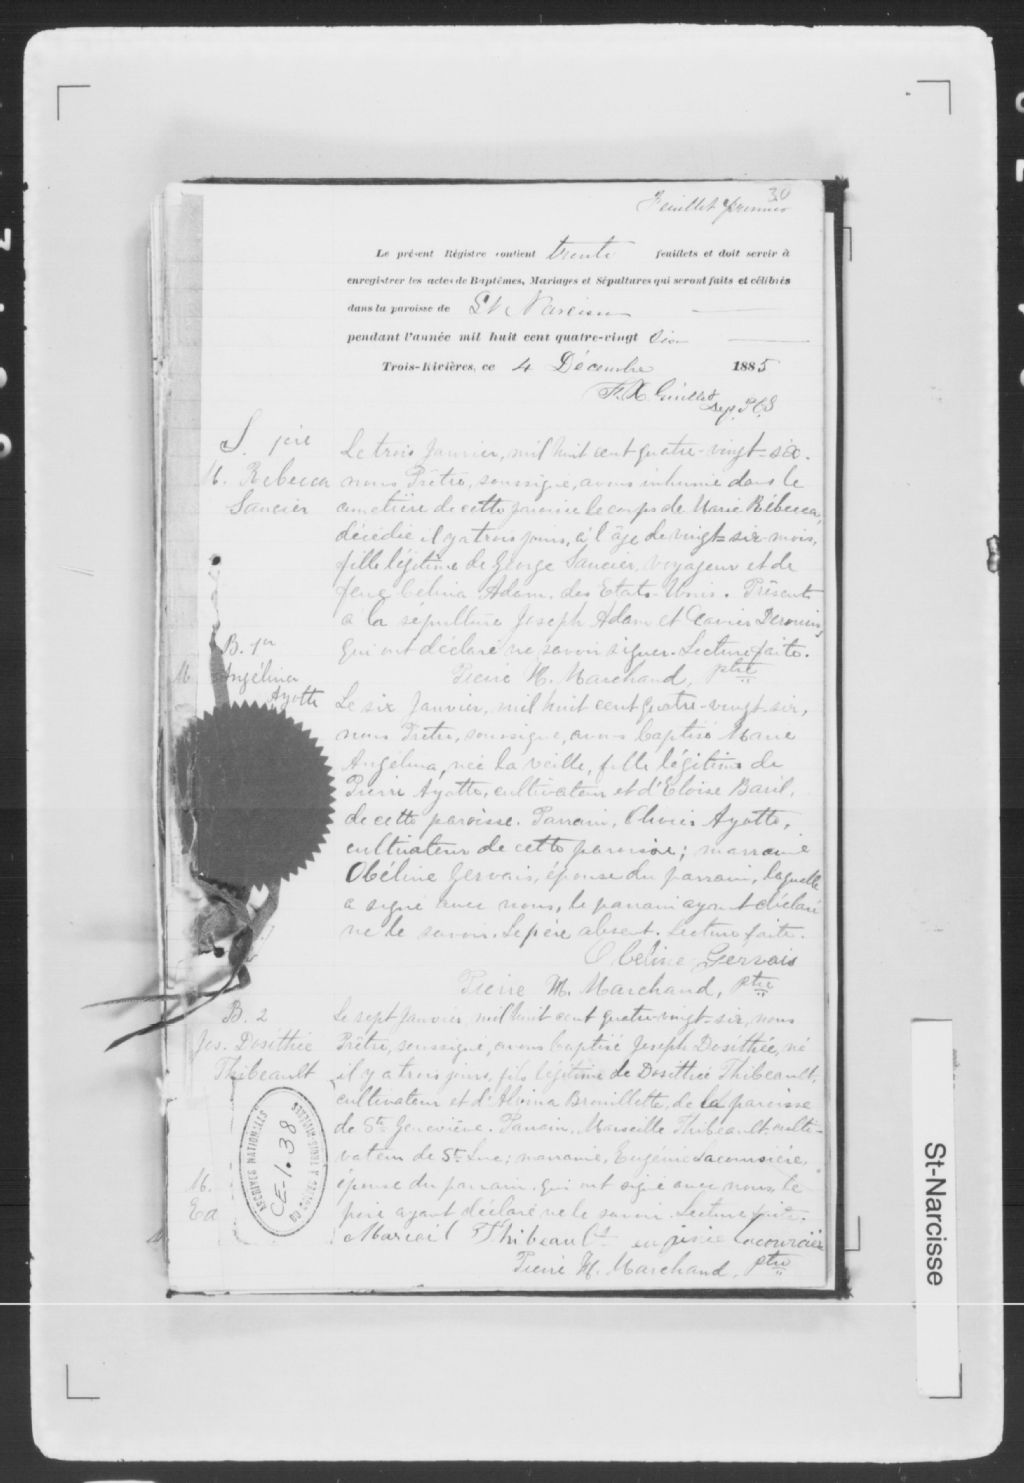 30
Feuillet premier
Le présent Régistre contient trente feuillets et doit servir à
enregistrer les actes de Baptêmes, Mariages et Sépultures qui seront faits et célébrés
dans la paroisse de St Narcisse
pendant l'année mil huit cent quatre-vingt six
Trois-Rivières, ce 4 Décembre 1885
F. X. Guillet
Dep. P.C.S
S. 1ère
M. Rebecca
Saucier
Le trois Janvier, mil huit cent quatre-vingt-six.
nous Prêtre, soussigné, avons inhumé dans le
cimetière de cette paroisse le corps de Marie Rébecca,
décédée il y a trois jours, à l'âge de vingt-six mois,
fille légitime de George Saucier, voyageur et de
feue Célina Adam, des Etats-Unis. Présents
à la sépulture Joseph Adam et Xavier
qui ont déclaré ne savoir signer. Lecture faite.
Pierre H. Marchand, ptre
B. 1er
M. Angélina
Ayotte
Le six Janvier, mil huit cent quatre-vingt-six,
nous Prêtre, soussigné, avons baptisé Marie
Angélina, née la veille, fille légitime de
Pierre Ayotte, cultivateur et d'Eloïse Baril,
de cette paroisse. Parrain, Olivier Ayotte,
cultivateur de cette paroisse; marraine
Obéline Gervais, épouse du parrain, laquelle
a signé avec nous, le parrain ayant déclaré
ne le savoir. Le père absent. Lecture faite.
Obeline Gervais
Pierre H. Marchand, ptre
B. 2
Jos. Dosithée
Thibeault
Le sept Janvier, mil huit cent quatre-vingt-six, nous
Prêtre, soussigné, avons baptisé Joseph Dosithée, né
il y a trois jours, fils légitime de Dosithée Thibeault,
cultivateur et d'Alvina Brouillette, de la paroisse
de Ste Geneviève. Parrain, Marseille Thibeault, culti-
vateur de St Luc; marraine, Eugénie Lacoursière,
épouse du parrain, qui ont signé avec nous, le
père ayant déclaré ne le savoir. Lecture faite.
Marceil Thibeault
Pierre H. Marchand, ptre
M.
Ed
ARCHIVES NATIONALES
DU QUÉBEC À TROIS-RIVIÈRES
CE-1.38
St-Narcisse